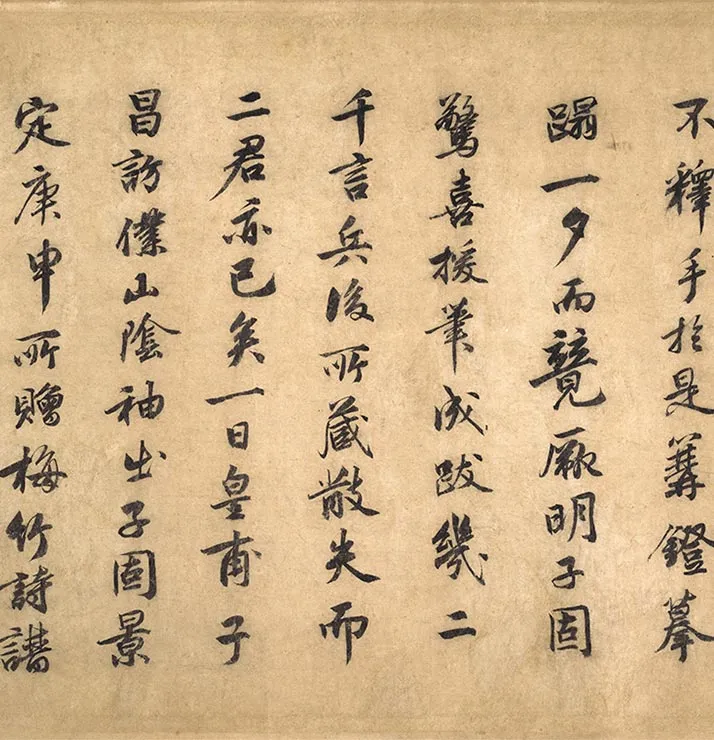 不釋手於是篝鐙摹
蹋一夕而競厥明子固
驚喜援筆成跋幾二
千言兵後所蔵散失而
二君亦已矣一日皇甫子
昌訪僕山陰袖出子固景
定庚申所贈梅竹詩譜